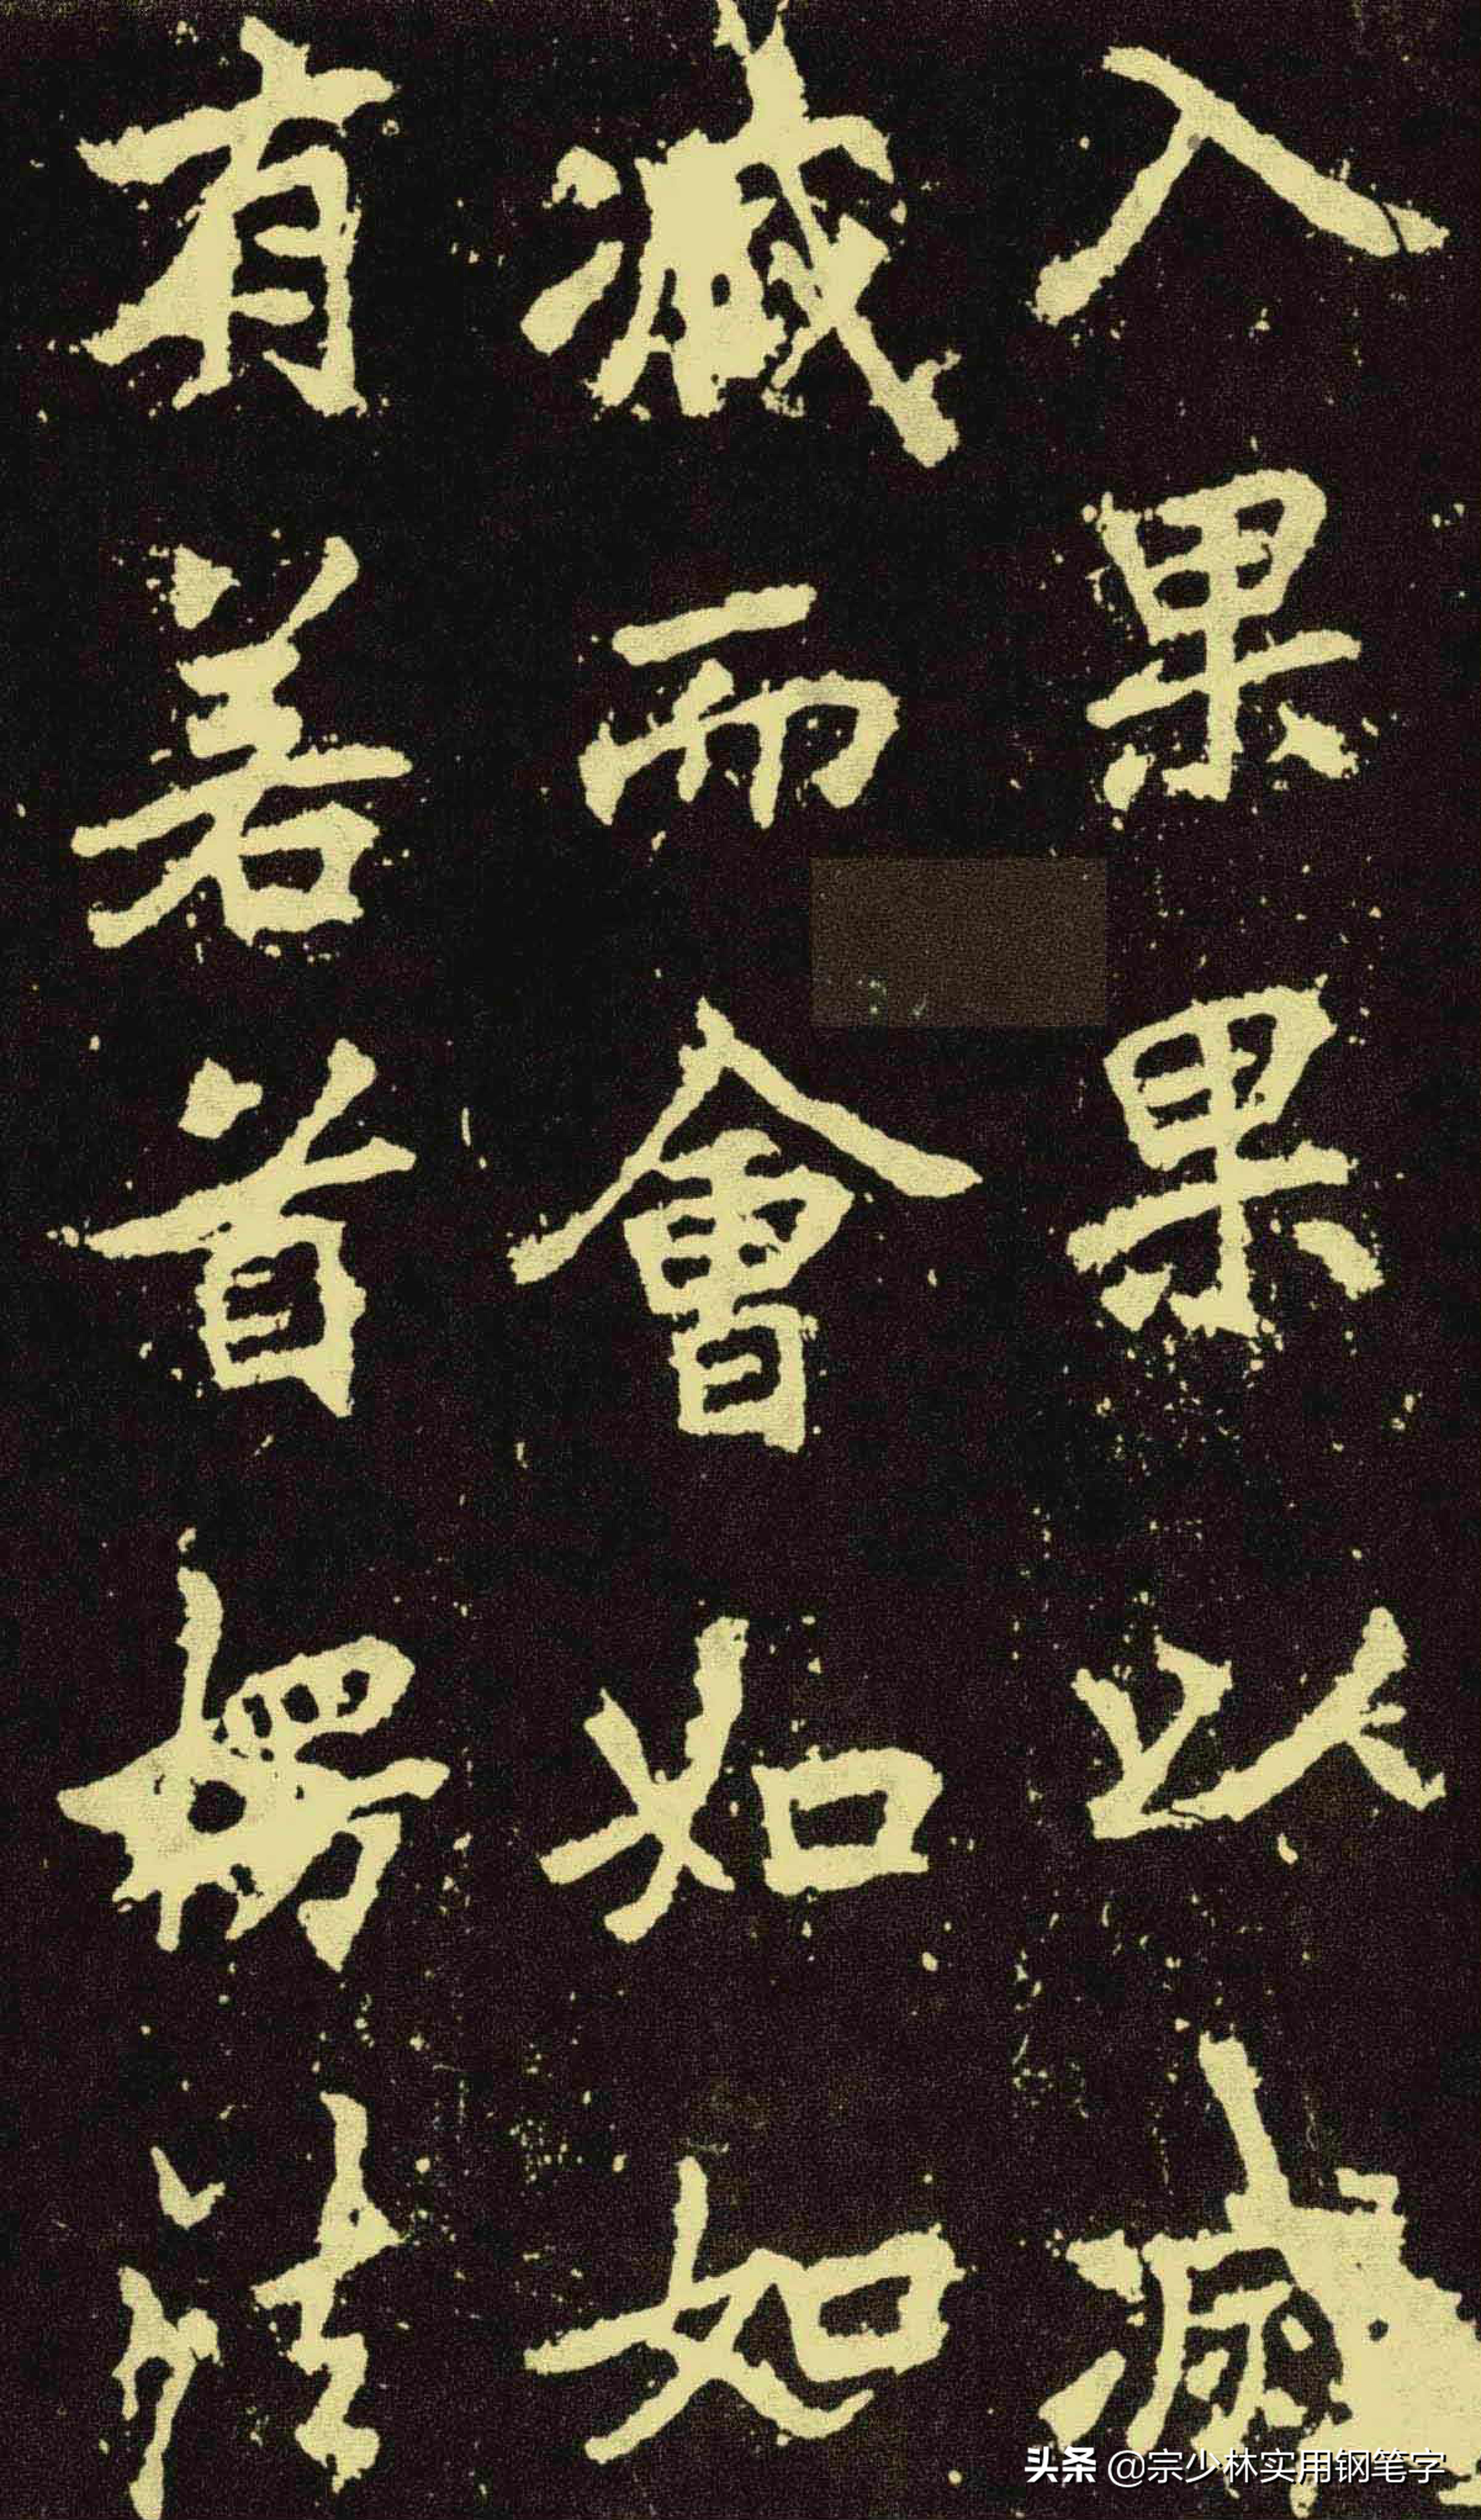 入果果以滅
滅而會如如
有若首楞法
头条 @宗少林实用钢笔字